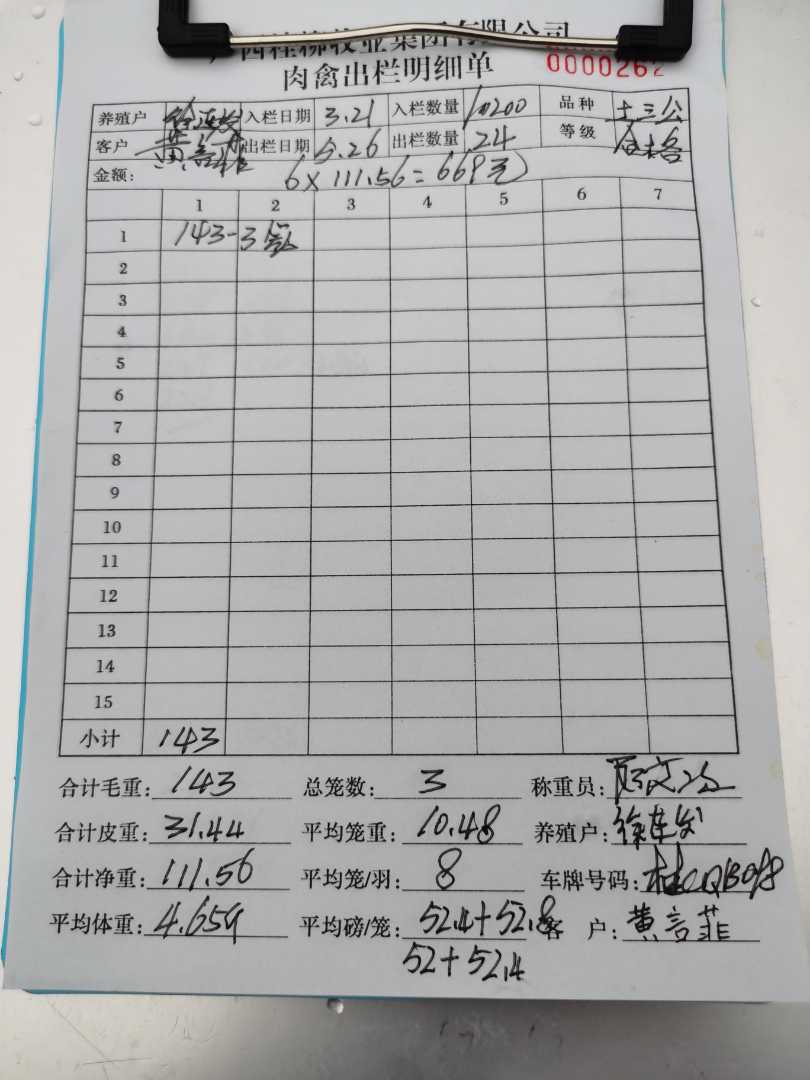 广西桂柳牧业集团有限公司
肉禽出栏明细单 0000262
养殖户 徐连发 入栏日期 3.21 入栏数量 10200 品种 土三公
客户 黄言菲 出栏日期 5.26 出栏数量 24 等级 合格
金额: 6×111.56=669元
1 2 3 4 5 6 7
1 143-3笼
2
3
4
5
6
7
8
9
10
11
12
13
14
15
小计 143
合计毛重: 143 总笼数: 3 称重员:
合计皮重: 31.44 平均笼重: 10.48 养殖户: 徐连发
合计净重: 111.56 平均笼/羽: 8 车牌号码:
平均体重: 4.659 平均磅/笼: 52.4+52.8 客户: 黄言菲
52+52.4